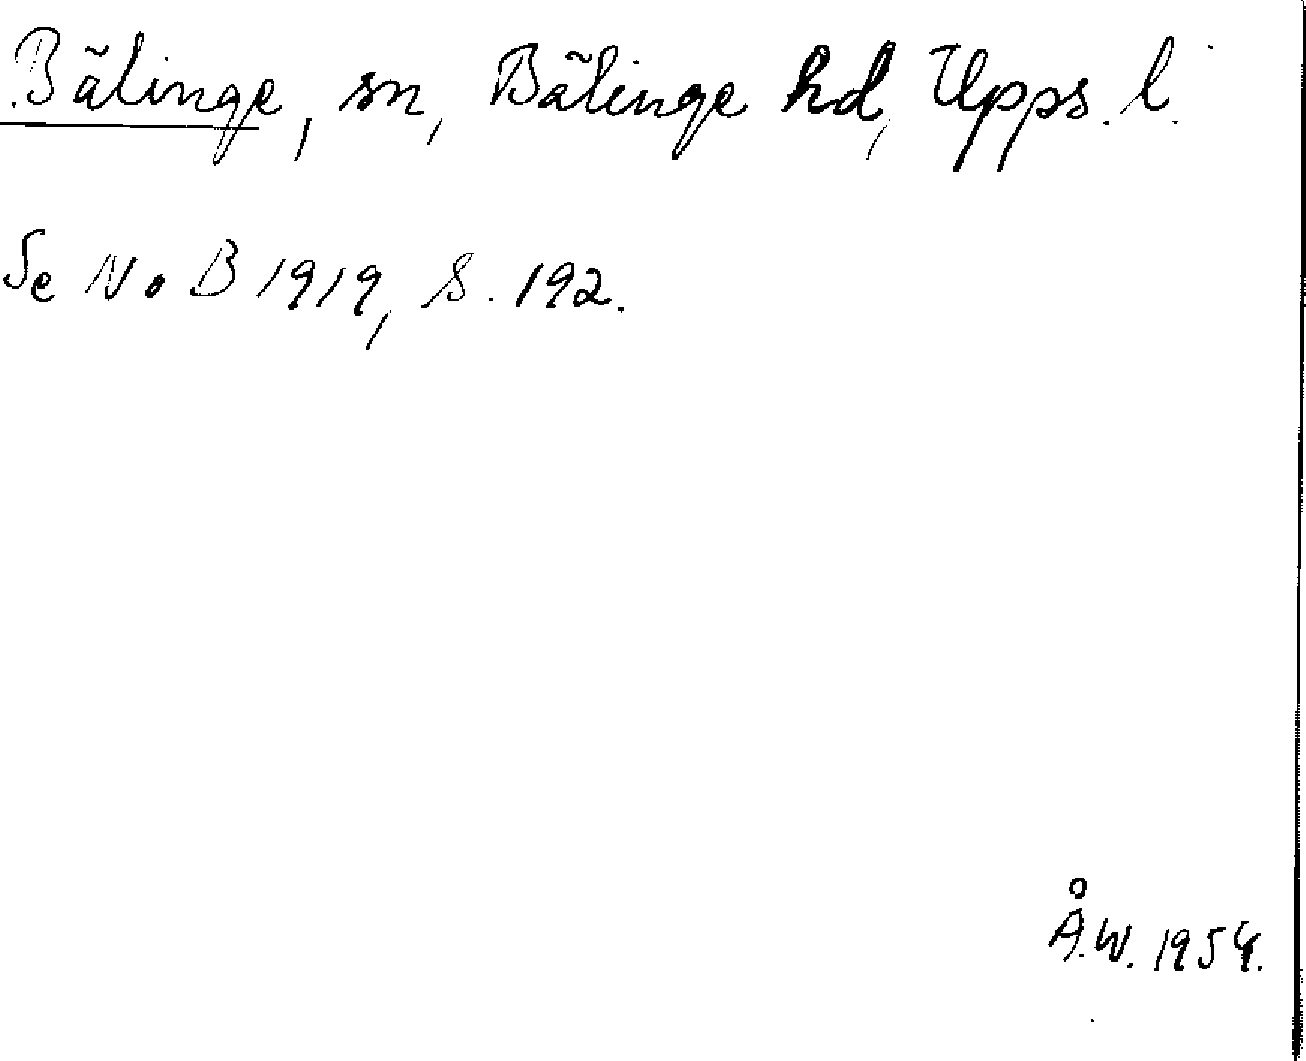 Bälinge, sn, Bälinge hd, Upps. l.
Se NoB 1919, S. 192.
Å.W. 1954.